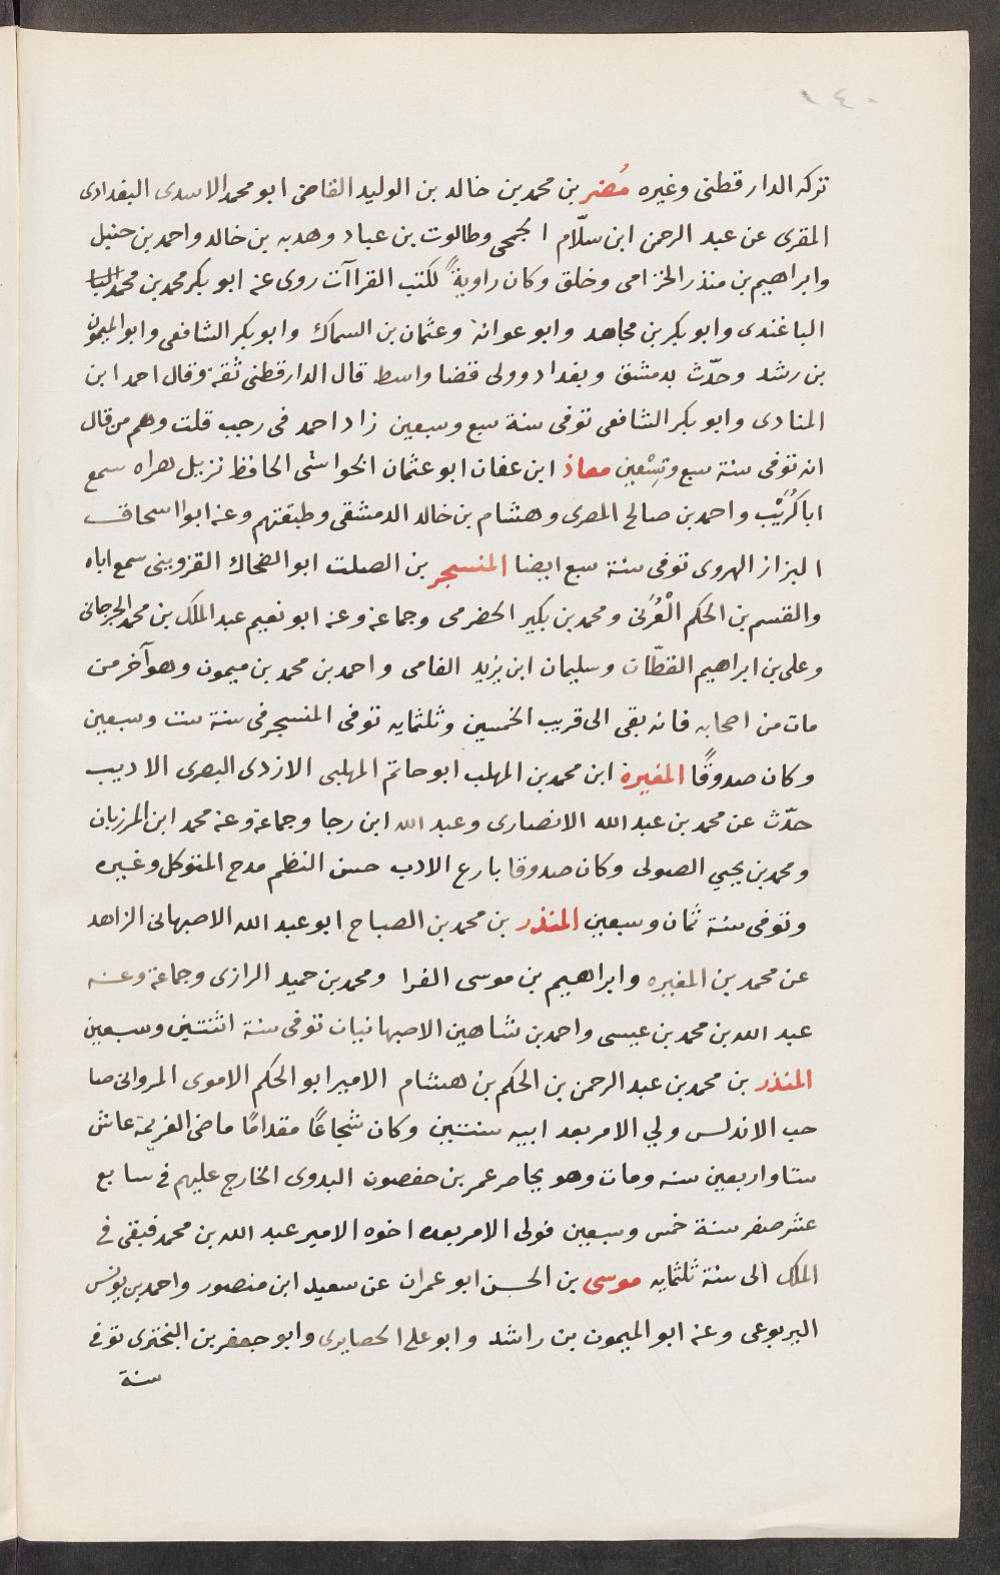 ١٤٠
تركه الدارقطنى وغيره مُضر بن محمد بن خالد بن الوليد القاضى ابو محمد الاسدى البغدادى
المقرى عن عبد الرحمن ابن سلّام الجمحى وطالوت بن عباد وهدبه بن خالد واحمد بن حنبل
وابراهيم بن منذر الخزامى وخلق وكان راويةً لكتب القراآت روى عنه ابو بكر محمد بن محمد
الباغندى وابو بكر بن مجاهد وابو عوانة وعثمان بن السماك وابو بكر الشافعى وابو الميمون
بن رشد وحدّث بدمشق وبغداد وولى قضا واسط قال الدارقطنى ثقة وقال احمد ابن
المنادى وابو بكر الشافعى توفى سنة سبع وسبعين زاد احمد فى رجب قلت وهم من قال
انه توفى سنة سبع وتِسْعين معاذ ابن عفان ابو عثمان الخواشى الحافظ نزيل هراه سمع
اباكُرَيْب واحمد بن صالح المصرى وهشام بن خالد الدمشقى وطبقتهم وعنه ابو اسحاق
البزاز الهروى توفى سنة سبع ايضا المنسجر بن الصلت ابو الضحاك القزوينى سمع اباه
والقسم بن الحكم الْعُرَنى ومحمد بن بكير الحضرمى وجماعة وعنه ابو نعيم عبد الملك بن محمد الجرجانى
وعلى بن ابراهيم القطّان وسليمان ابن يزيد الفامى واحمد بن محمد بن ميمون وهو آخر من
مات من اصحابه فانه بقى الى قريب الخمسين وثلثمايه توفى المنسجر فى سنة ست وسبعين
وكان صدوقًا المغيرة ابن محمد بن المهلب ابو حاتم المهلبى الازدى البصرى الاديب
حدّث عن محمد بن عبد الله الانصارى وعبد الله ابن رجا وجماعة وعنه محمد ابن المرزبان
ومحمد بن يحيى الصولى وكان صدوقا بارع الادب حسن النظم مدح المتوكل وغيره
وتوفى سنة ثمان وسبعين المنذر بن محمد بن الصباح ابو عبد الله الاصبهانى الزاهد
عن محمد بن المغيره وابراهيم بن موسى الفرا ومحمد بن حميد الرازى وجماعة وعنه
عبد الله بن محمد بن عيسى واحمد بن شاهين الاصبهانيان توفى سنة اثنتين وسبعين
المنذر بن محمد بن عبد الرحمن بن الحكم بن هشام الامير ابو الحكم الاموى المروانى صا
حب الاندلس ولي الامر بعد ابيه سنتين وكان شجاعًا مقدامًا ماضى الغريمة عاش
ستا واربعين سنه ومات وهو يحاصر عمر بن حفصون البدوى الخارج عليهم فى سابع
عشر صفر سنة خمس وسبعين فولى الامر بعده اخوه الامير عبد الله بن محمد فبقى فى
الملك الى سنة ثلثمايه موسى بن الحسن ابو عمران عن سعيد ابن منصور واحمد بن يونس
اليربوعى وعنه ابو الميمون بن راشد وابو على الحصايرى وابو جعفر بن البخترى توفى
سنة